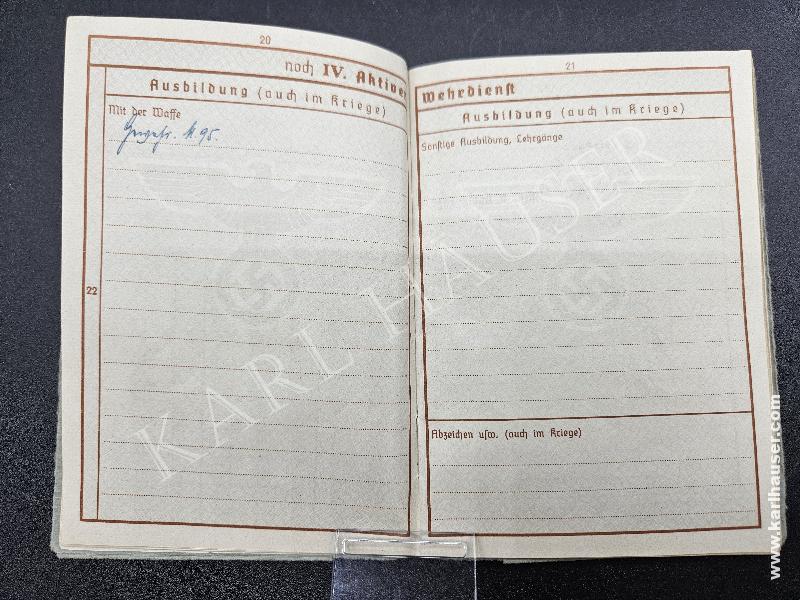 20
noch IV. Aktiver
Ausbildung (auch im Kriege)
Mit der Waffe
M 95.
22
21
Wehrdienst
Ausbildung (auch im Kriege)
Sonstige Ausbildung, Lehrgänge
Abzeichen usw. (auch im Kriege)
KARL HAUSER
www.karlhauser.com